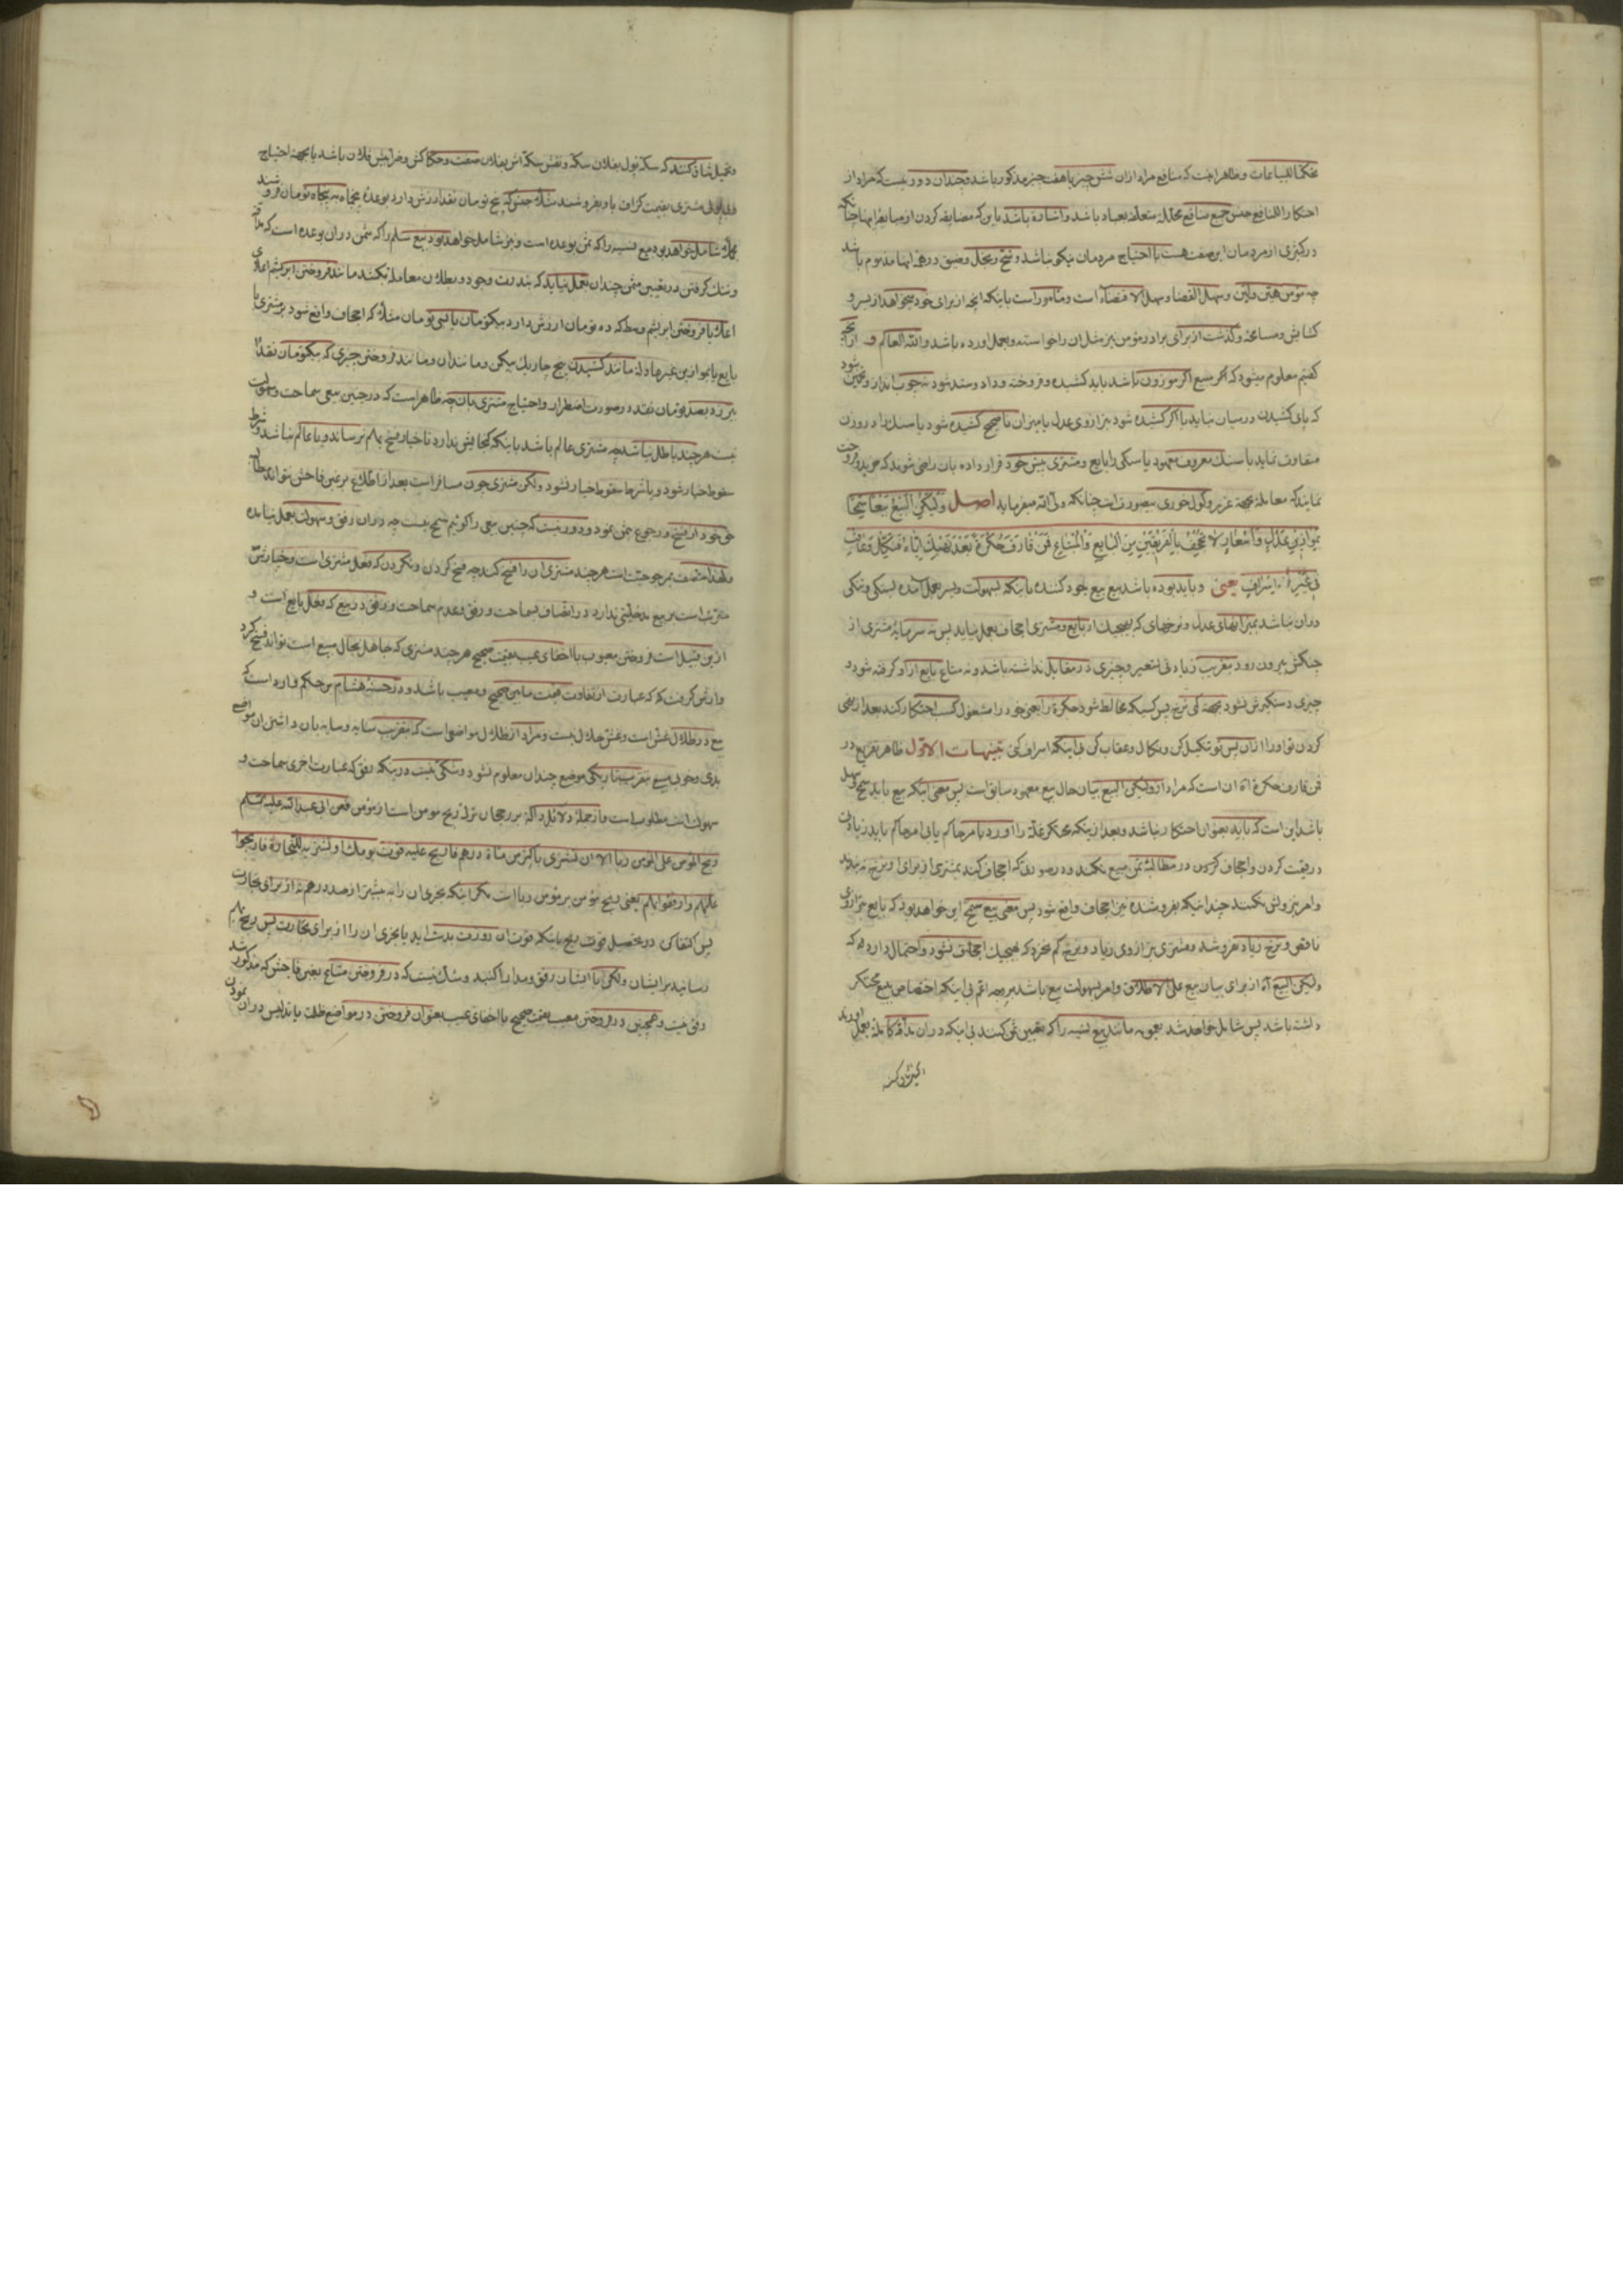 تحکما للبیاعات و ظاهر اینست که منافع مراد ازان شش چیز یا هفت چیز مذکور باشد و چندان دور نیست که مراد از
احتکارا للمنافع حبس جمیع منافع محلله متعلقه بعباد باشد و اشاره باشد باین که مضایقه کردن از منافع اینها چنانکه
در کثیری از مردمان این صفت هست با احتیاج مردمان نیکو نباشد و شح و بخل و ضیق در همه اینها مذموم باشد
چه مؤمن هین و لین و سهل القضا و سهل الاقتضاء است و مأمور است باینکه انچه از برای خود میخواهد از یسر و
کشایش و مسامحه و گذشت از برای برادر مؤمن نیز مثل ان را خواسته و بعمل اورده باشد والله العالم و از انچه
گفتیم معلوم میشود که اگر مبیع اگر موزون باشد باید کشیده و فروخته و داد و ستد شود نه چوب انداز و تخمین شود
که پای کشیدن در میان نیاید یا اگر کشیده شود بترازوی عدل یا میزان ناصحیح کشیده شود یا سنک را در وزن
متفاوت نماید یا سنک معروف معهود یا سنکی را بایع و مشتری پیش خود قرار داده بان راضی شوند که خرید و فروخت
نمایند که معامله بجهة غرر و گول خوری بیصورت است چنانکه ولی الله میفرماید اصل وَلْيَكُنِ الْبَيْعُ بَيْعاً سَمْحاً
بِمَوَازِينِ عَدْلٍ وَأَسْعَارٍ لَا تُجْحِفُ بِالْفَرِيقَيْنِ مِنَ الْبَايِعِ وَالْمُبْتَاعِ فَمَنْ قَارَفَ حُكْرَةً بَعْدَ نَهْيِكَ إِيَّاهُ فَنَكِّلْ وَعَاقِبْ
فِي غَيْرِ إِسْرَافٍ یعنی و باید بوده باشد بیع بیع جود کننده باینکه بسهولت و یسر بعمل آمده بسنکی و تنکی
دران نباشد بمیزانهای عدل و نرخهای که بهیچیک از بایع و مشتری اجحاف بعمل نیاید پس نه سرمایه مشتری از
چنکش بیرون رود بتقریب زیادتی تسعیر و چیزی در مقابل نداشته باشد و نه متاع بایع از او گرفته شود و
چیزی دستگیرش نشود بجهة کمی نرخ پس کسیکه مخالط شود حکرة را یعنی خود را مشغول کسب احتکار کند بعد از نهی
کردن تو او را ازان پس تو تنکیل کن و نکال و عقاب کن بی اینکه اسراف کنی تنبیهات الاول ظاهر تفریع در
فمن قارف حکرة اه ان است که مراد از ولیکن البیع بیان حال بیع معهود سابق است پس معنی اینکه بیع باید سمح و سهل
باشد این است که باید بعنوان احتکار نباشد و بعد از اینکه محتکر غله را اورد بامر حاکم یا بی امر حاکم باید زیادت
در قیمت کردن و اجحاف کردن در مطالبه ثمن مبیع نکند و در صورتی که اجحاف کند بمشتری از برای او نرخ نه بندند
و امر بزولش نکنند چندانیکه بفروشنده نیز اجحاف واقع شود پس معنی بیع سمح این خواهد بود که بایع بترازوی
ناقص و نرخ زیاد نفروشد و مشتری بترازوی زیاد و نرخ کم نخرد که بهیچیک اجحاف نشود و احتمال دارد که
ولیکن البیع آه از برای بیان بیع علی الاطلاق و امر بسهولت بیع باشد بر وجه اعم بی اینکه اختصاص ببیع محتکر
داشته باشد پس شامل خواهد شد بعمومه مانند بیع نسیه را که تعیین ثمن کنند بی اینکه دران مداقه کامله بعمل اورند
و تحیل شاذ کنند که سکه پول بفلان سکه و نقش سکه اش بفلان صفت و حکاکش و ضرابش فلان باشد یا بجهة احتیاج
مشتری بقیمت گزاف باو بفروشند مثلا جنس که پنج تومان نقد ارزش دارد بوعده پنجماه به پنجاه تومان فروشند
شامل خواهد بود بیع نسیه را که ثمن بوعده است و نیز شامل خواهد بود بیع سلم را که مثمن دران بوعده است که مداقه
و تنک گرفتن در تعیین مثمن چندان بعمل نیاید که بندرت وجود و بطلان معامله نکشد مانند فروختن ابریشم اعلای
اعلا یا فروختن ابریشم وسط که ده تومان ارزش دارد بیکتومان یا بسی تومان مثلا که اجحاف واقع شود بر مشتری یا
بایع یا بموازین غیر عادله مانند کشیدن پنج چاریک بیکمن و مانند ان و مانند فروختن چیزی که بیکتومان نقد
نیرزد بصد تومان نقد در صورت اضطرار و احتیاج مشتری بان چه ظاهر است که در چنین بیعی سماحت و سهولت
نیست هر چند باطل نباشد چه مشتری عالم باشد باینکه گنجایش ندارد تا خیار فسخ بهم نرساند و یا عالم نباشد و شرط
سقوط خیار شود و یا شرط سقوط خیار نشود ولکن مشتری چون مسافر است بعد از اطلاع بر غبن فاحش نتواند
حق خود از فسخ و رجوع ثمن نمود و دور نیست که چنین بیعی را گوئیم سمح نیست چه دران رفق و سهولت بعمل نیامده
و لهذا متصف بمرجوحیت است هر چند مشتری ان را فسخ کند چه فسخ کردن و نکردن که فعل مشتری است و خیارش
مترتب است بر بیع مدخلیتی ندارد در اتصاف بسماحت و رفق و عدم سماحت و رفق در بیع که فعل بایع است و
ازین قبیل است فروختن معیوب با اخفای عیب بقیمت صحیح هر چند مشتری که جاهل بحال مبیع است تواند فسخ کرد
و ارش گرفت که عبارت از تفاوت قیمت مابین صحیح و معیب باشد و در حسنه هشام بن حکم وارد است که
بیع در ظلال غش است و غش حلال نیست و مراد از ظلال مواضعی است که بتقریب سایه و سایه بان داشتن ان موضع
بدی و خوبی مبیع بتقریب تاریکی موضع چندان معلوم نشود و شکی نیست در اینکه رفق که عبارت اخری سماحت و
سهولت است مطلوب است و از جمله دلائل داله بر رجحان ترک ربح مومن است از مؤمن فعن ابی عبد الله علیه السلم
ربح المؤمن علی المؤمن ربا الا ان یشتری باکثر من مائة درهم فاربح علیه قوت یومک او یشتریه للتجارة فاربحوا
علیهم و ارفقوا بهم یعنی ربح مؤمن بر مؤمن ربا است مگر اینکه بخری ان را به بیشتر از صد درهم نه از برای تجارت
پس اکتفا کن در تحصیل قوت ربح باینکه قوت ان روزت بدست اید یا بخری ان را از برای تجارت پس ربح بهم
رسانید بر ایشان ولکن با ایشان رفق و مدارا کنید و شک نیست که در فروختن متاع بغبن فاحش که مذکور شد
رفق نیست و همچنین در فروختن معیب بقیمت صحیح با اخفای عیب بعنوان فروختن در مواضع ظلمت یا تدلیس دران نمودن